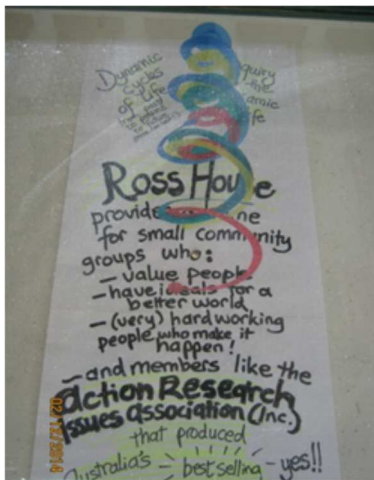 Dynamic
Cycles
of Life
quiry
amic
Ross House
provides
for small community
groups who:
– value people
– have ideals for a
better world
– (very) hard working
people who make it
happen!
– and members like the
action Research
issues association (Inc.)
that produced
Australia's – best selling – yes!!
02/12/2014